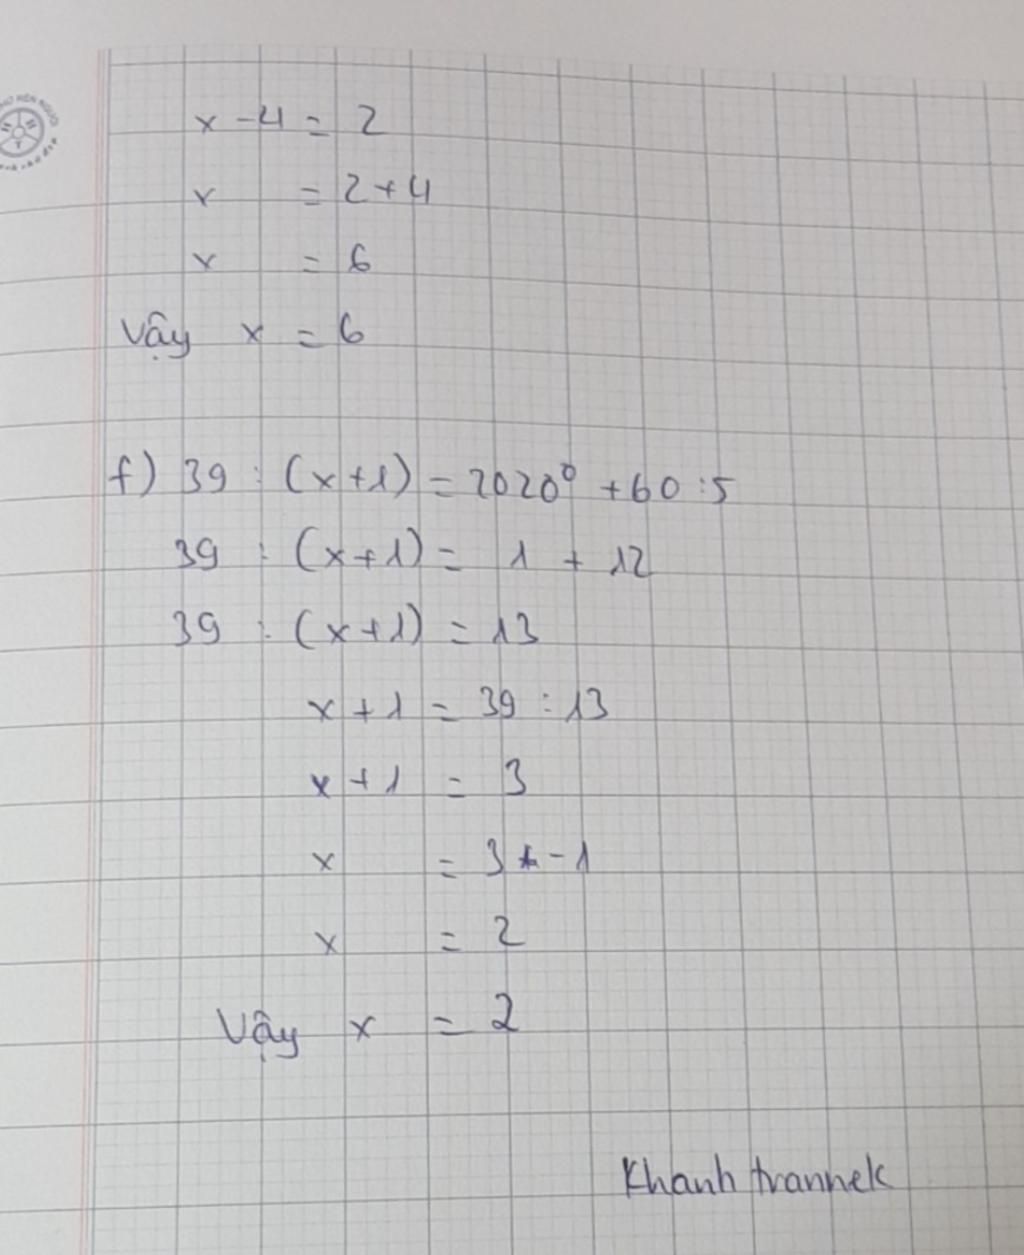 x - 4 = 2
x = 2 + 4
x = 6
Vậy x = 6
f) 39 : (x+1) = 2020⁰ + 60 : 5
39 : (x+1) = 1 + 12
39 : (x+1) = 13
x + 1 = 39 : 13
x + 1 = 3
x = 3 - 1
x = 2
Vậy x = 2
Khanh trannek